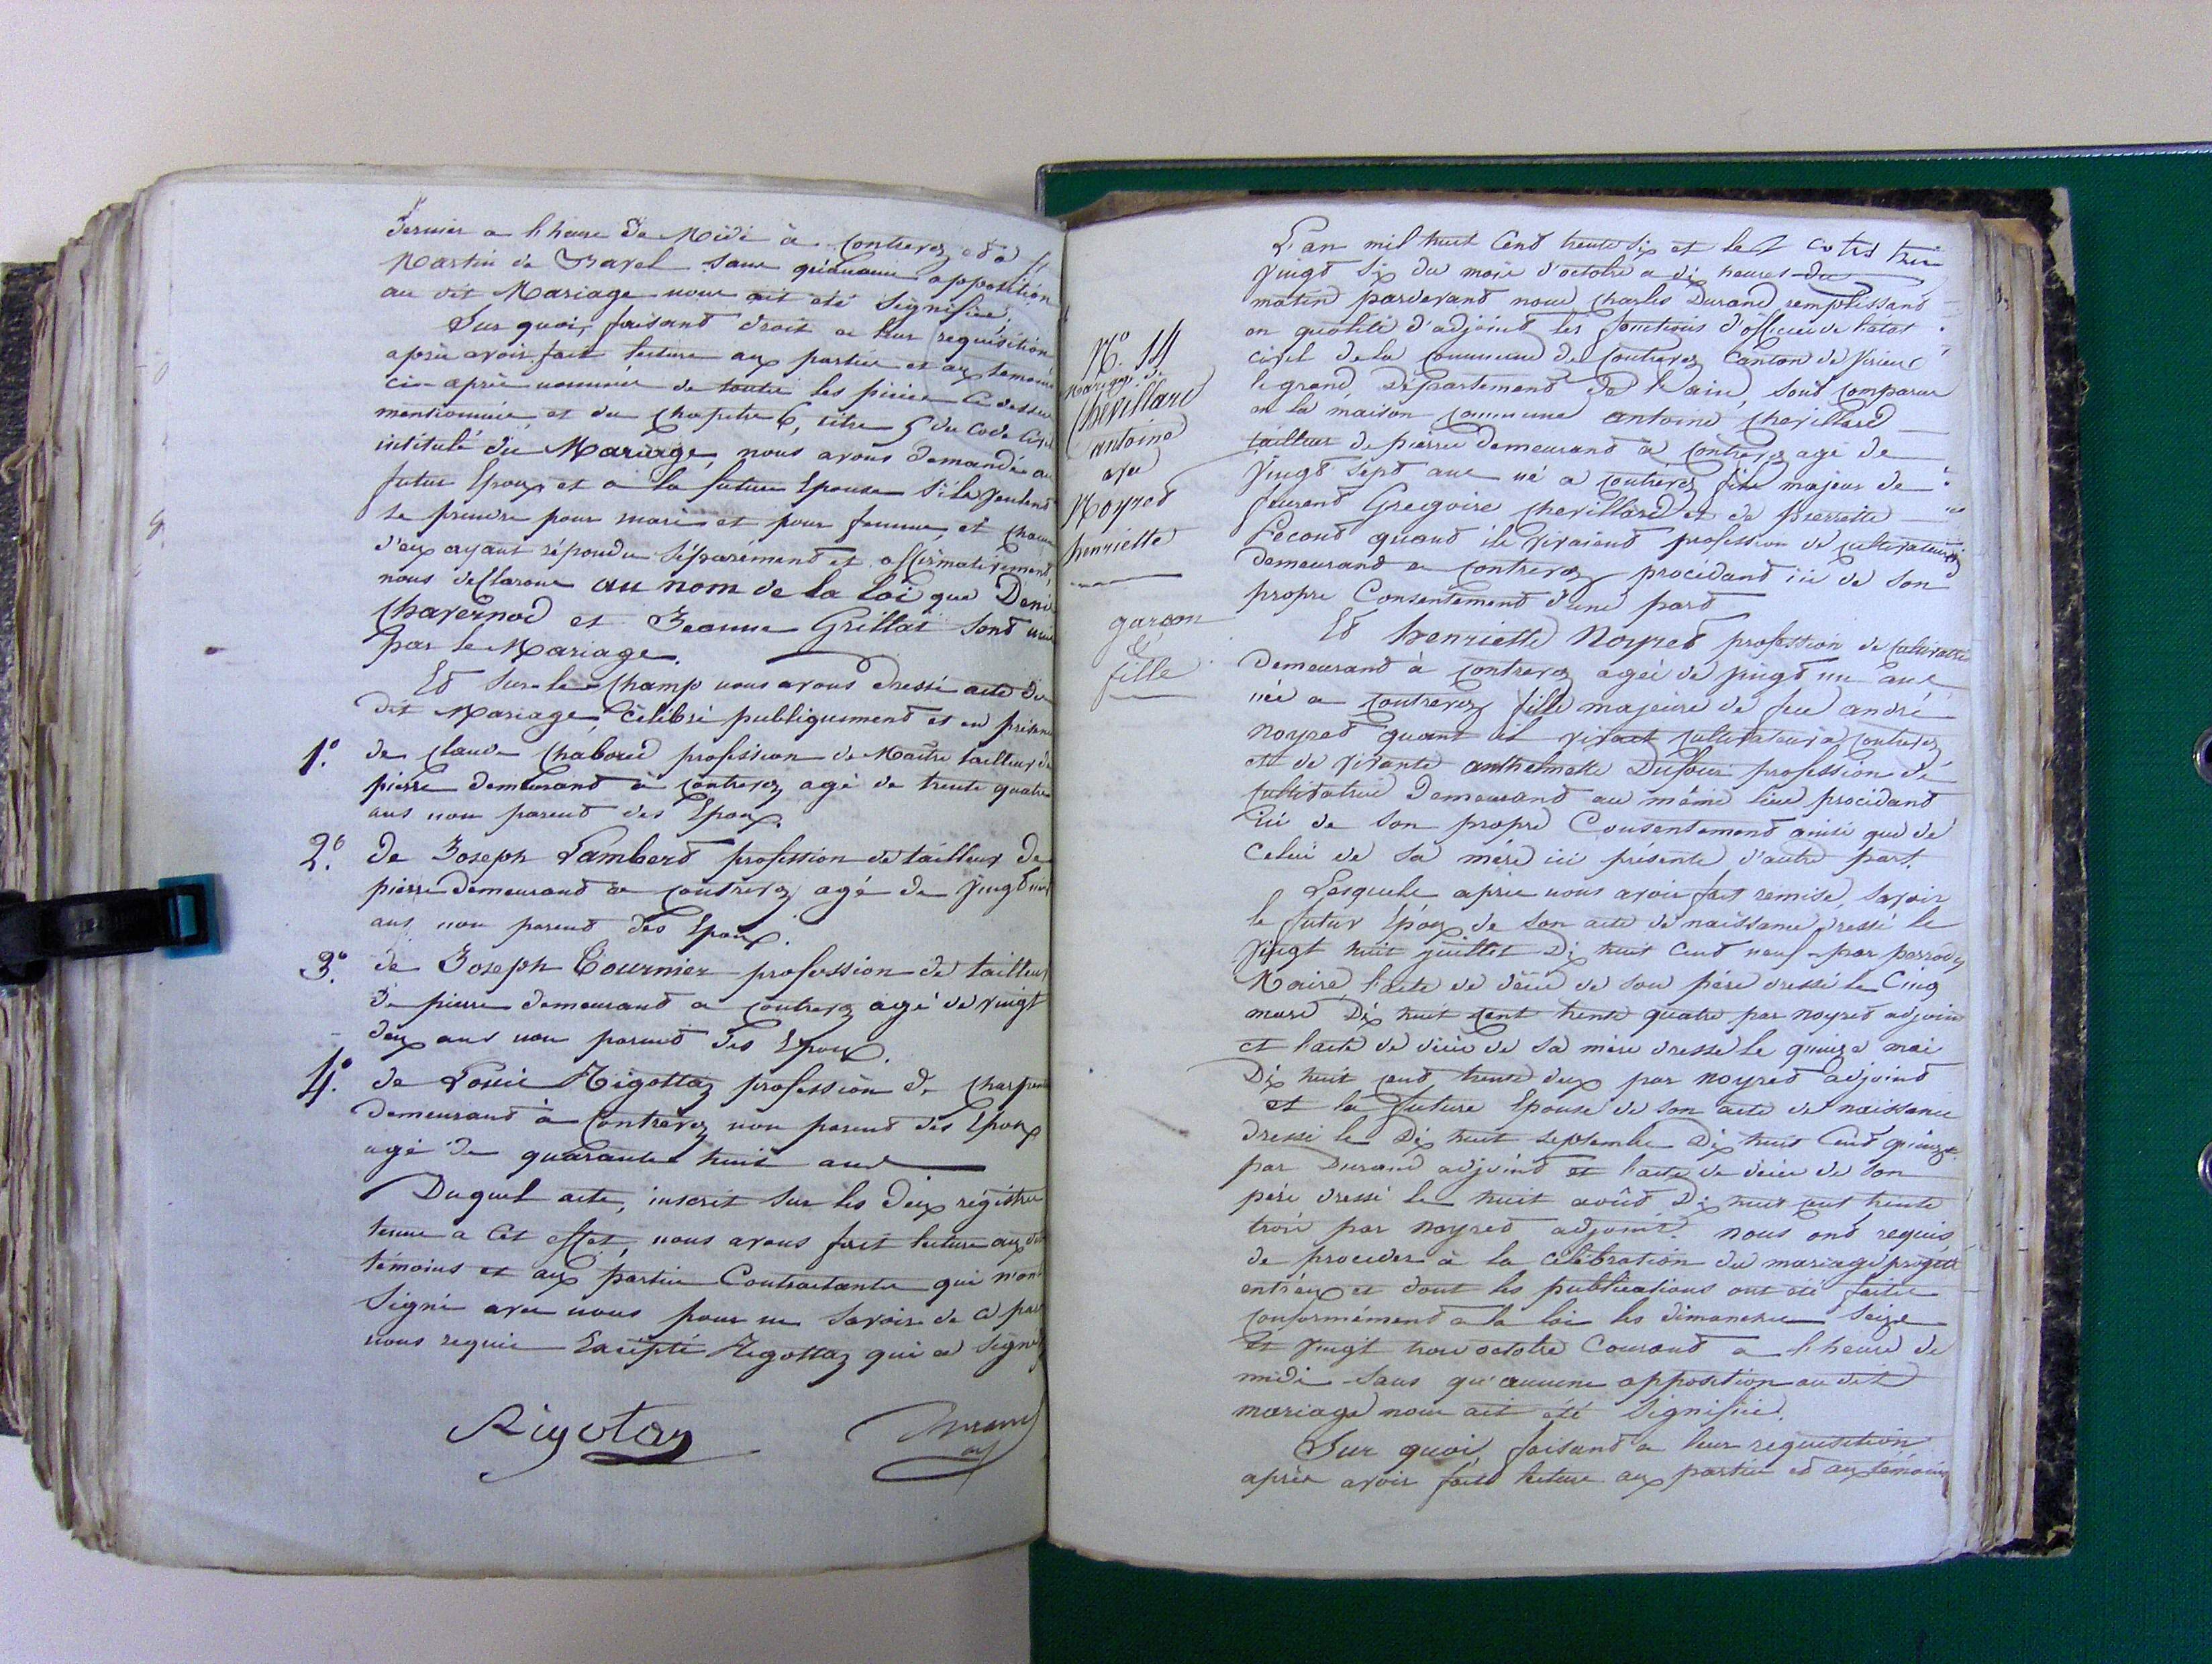 dernier a l'heure de Midi à Contrevoz et à St
Martin de Bavel sans qu'aucune opposition
au dit Mariage nous ait été signifiée.
Sur quoi, faisant droit a leur requisition
après avoir fait lecture aux parties et aux temoins
ci-après nommés de toutes les pièces ci dessus
mentionnées, et du chapitre 6, titre 5 du code civil
intitulé du Mariage, nous avons demandé au
futur Epoux et a la future Epouse s'ils veulent
se prendre pour mari et pour femme, et chacun
d'eux ayant répondu séparément et affirmativement,
nous declarons au nom de la Loi que Denis
Chavernod et Jeanne Grillat sont unis
par le Mariage.
Et sur le Champ nous avons dressé acte du
dit Mariage, célébré publiquement et en présence
1.° de Claude Chaboud profession de Maitre tailleur de
pierre demeurand à Contrevoz agé de trente quatre
ans non parend des Epoux.
2.° de Joseph Lamberd profession de tailleur de
pierre demeurand a Contrevoz agé de vingt
ans non parend des Epoux.
3.° de Joseph Tournier profession de tailleur
de pierre demeurand a Contrevoz agé de vingt
deux ans non parend des Epoux.
4.° de Louis Rigottaz profession de
demeurand à Contrevoz non parend des Epoux
agé de quarante huit ans
Duquel acte, inscrit sur les deux régistres
tenus a cet effet, nous avons fait lecture aux dits
témoins et aux parties Contractantes qui n'ont
signé avec nous pour ne savoir de ce par
nous requis Excepté Rigottaz qui a signé
Rigotaz Durand
adj
N.° 14
Mariage de
Chevillard
antoine
avec
Noyred
henriette
garçon
&
fille
L'an mil huit Cend trente six et le
vingt six du mois d'octobre a dix heures du
matin pardevand nous Charles Durand remplissand
en qualité d'adjoint les fonctions d'officier de l'etat
civil de la Commune de Contrevoz Canton de Virieux
le grand Département de l'ain, sont comparus
en la maison commune antoine Chevillard
tailleur de pierre demeurand à Contrevoz agé de
vingt sept ans né a Contrevoz fils majeur de
feurent Gregoire Chevillard et de pierrette
Second quand ils vivaient profession de cultivateurs
demeurand a Contrevoz procédand ici de son
propre Consentement d'une part
Et henriette Noyred profession de cultivatrice
demeurand à Contrevoz agée de vingt un ans
née a Contrevoz fille majeure de feu andré
noyred quant il vivait cultivateur a Contrevoz
et de vivante anthelmette Dufour profession de
cultivatrice demeurand au même lieu procédand
ici de son propre Consentement ainsi que de
celui de sa mère ici présente d'autre part.
Lesquels après nous avoir fait remise, savoir
le futur Epoux de son acte de naissance dressé le
vingt huit juillet Dix huit cent neuf par
Maire, l'acte de décès de son père dressé le cinq
mars Dix huit cent trente quatre par noyred adjoint
et l'acte de décès de sa mère dressé le quinze mai
Dix huit cend trente deux par noyred adjoind
et la future Epouse de son acte de naissance
dressé le dix huit septembre dix huit cend quinze
par Durand adjoind et l'acte de décès de son
père dressé le huit août dix huit cent trente
trois par noyred adjoint. nous ont requis
de proceder à la célébration du mariage projeté
entr'eux et dont les publications ont été faites
conformément a la loi les dimanches seize
et vingt trois octobre Courand a l'heure de
midi sans qu'aucune opposition au dit
mariage nous ait été signifiée.
Sur quoi, faisand a leur requisition
après avoir faite lecture aux parties et aux témoins